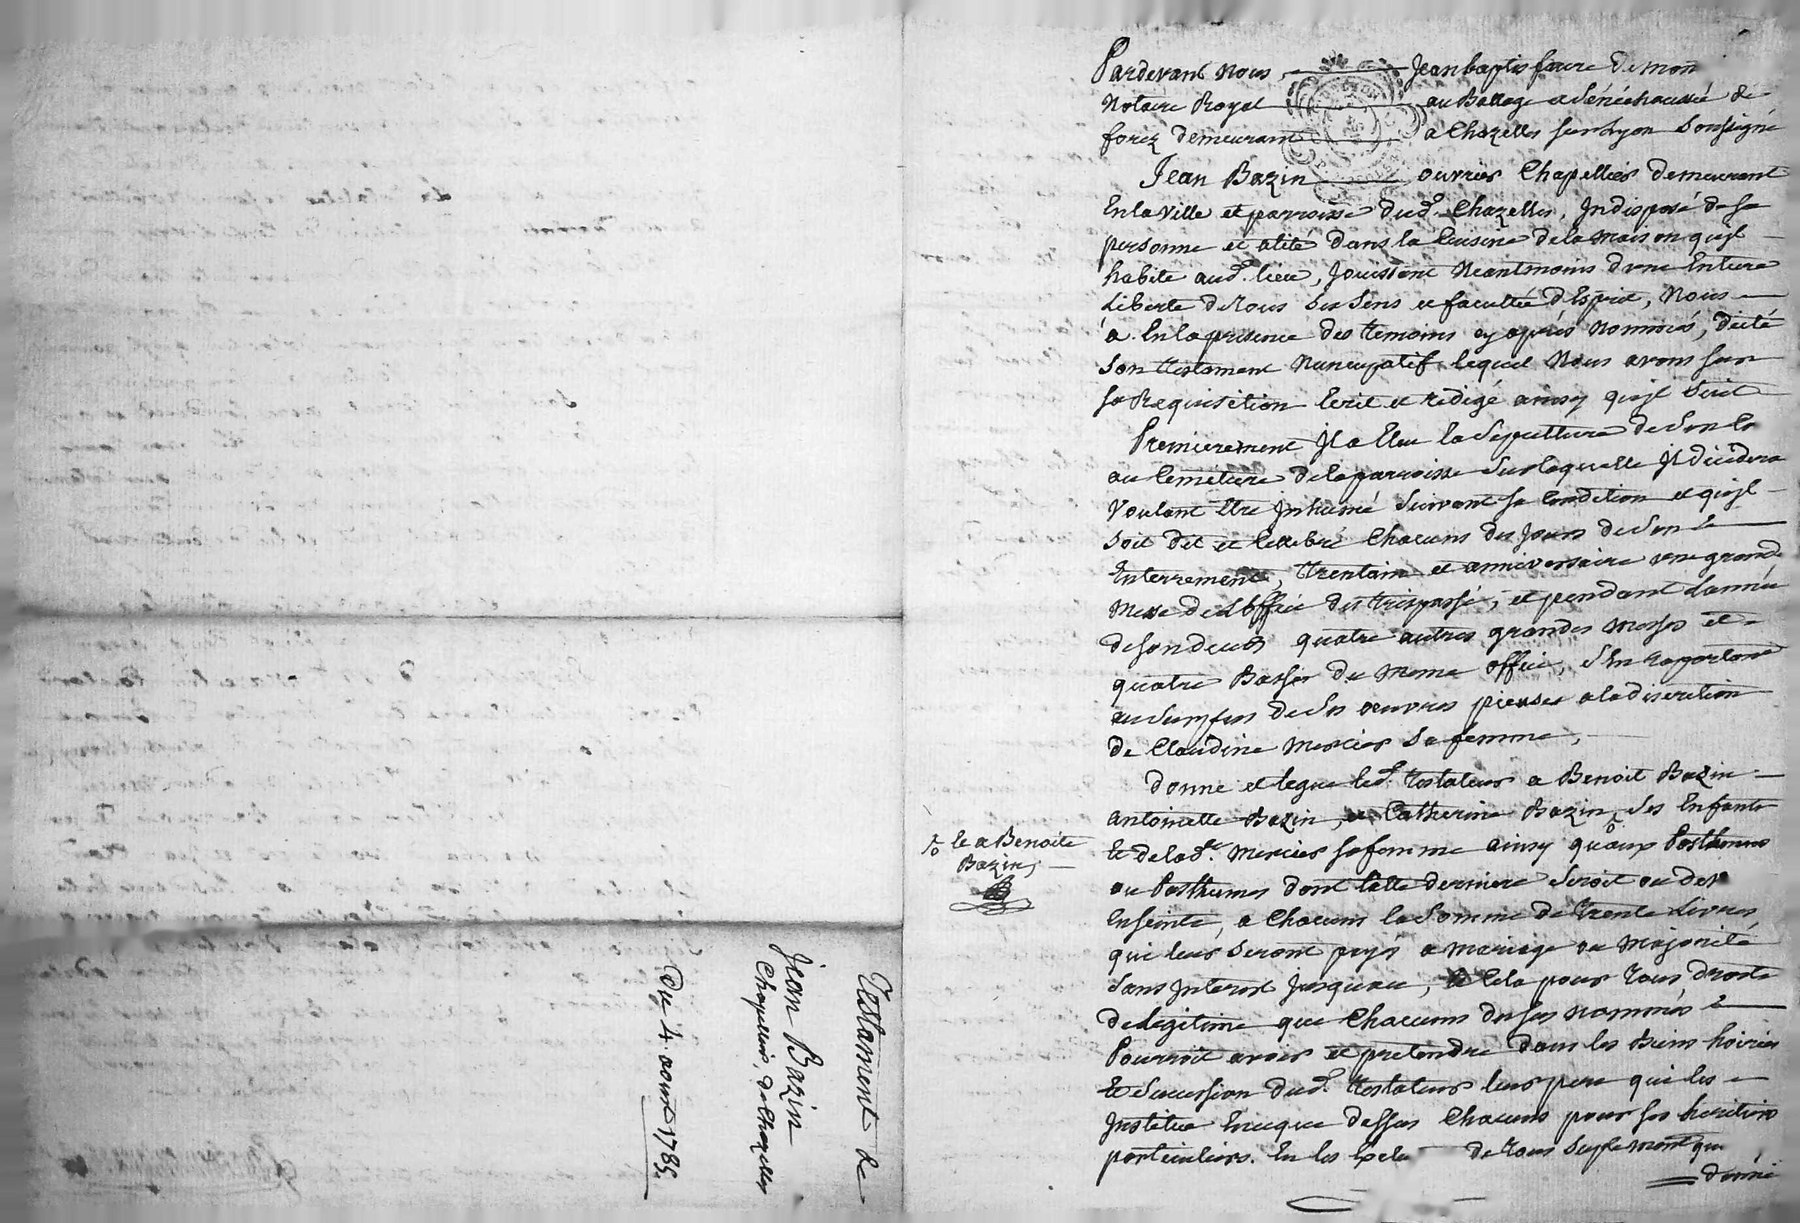 Pardevant Nous, Jean baptiste faure Demon
Notaire Royal au Ballage et Sénéchaussée de
forez demeurant a Chazelles sur Lyon Soussigné
Jean Bazin ouvrier Chapellier demeurant
En la Ville et parroisse dud. Chazelles, Indisposé de sa
personne et alité dans la Cuisine de la Maison quil
habite aud. lieu, Jouissant Neantmoins dune Entiere
Liberté de tous Ses Sens et faculté d'Esprit, Nous
a En la presence des temoins cy après Nommés, dicté
Son testament Nuncupatif lequel Nous avons sur
sa Requisition Ecrit et redigé ainsy quil Suit
Premierement Il a Elu la Sepulture de Son Cs
au Cemetiere de la parroisse Sur laquelle Il décédera
Voulant Etre Inhumé Suivant sa Condition et quil
Soit dit et Cellebré Chacuns des Jours de Son
Enterrement, trentain et anniversaire une grande
Messe de Loffice des trespassé, et pendant Lannée
de son deces quatre autres grandes Messes et
quatre Basses du meme office, S'En raportant
au Surplus de Ses œuvres pieuses a la discretion
de Claudine Mercier Sa femme,
Donne et legue led. testateur a Benoit Bazin
antoinette Bazin, et Catherine Bazin Ses Enfants
le a Benoite
Bazin,
Et de lad. Mercier sa femme ainsy quaux Posthumes
ou Posthumes dont Cette derniere Seroit ou
Enseinte, a Chacuns la Somme de trente Livres
qui leur Seront payé a Mariage ou Majorité
Sans Interest Jusqu'au, Cela pour tous droits
de Legitime que Chacuns de ses nommés
Pourroit avoir et pretendre dans les Biens hoiries
Et Succession dud. testateur leur pere qui les
Institue En ce que dessus Chacuns pour ses heritiers
particuliers. En les de tous Suplement qu
donné
Testament de
Jean Bazin
Chapellier, de Chazelles
Du 4. aoust 1785